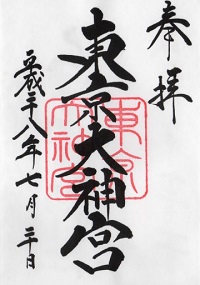 奉拝
東京大神宮
東京大神宮
平成二十八年七月二十日